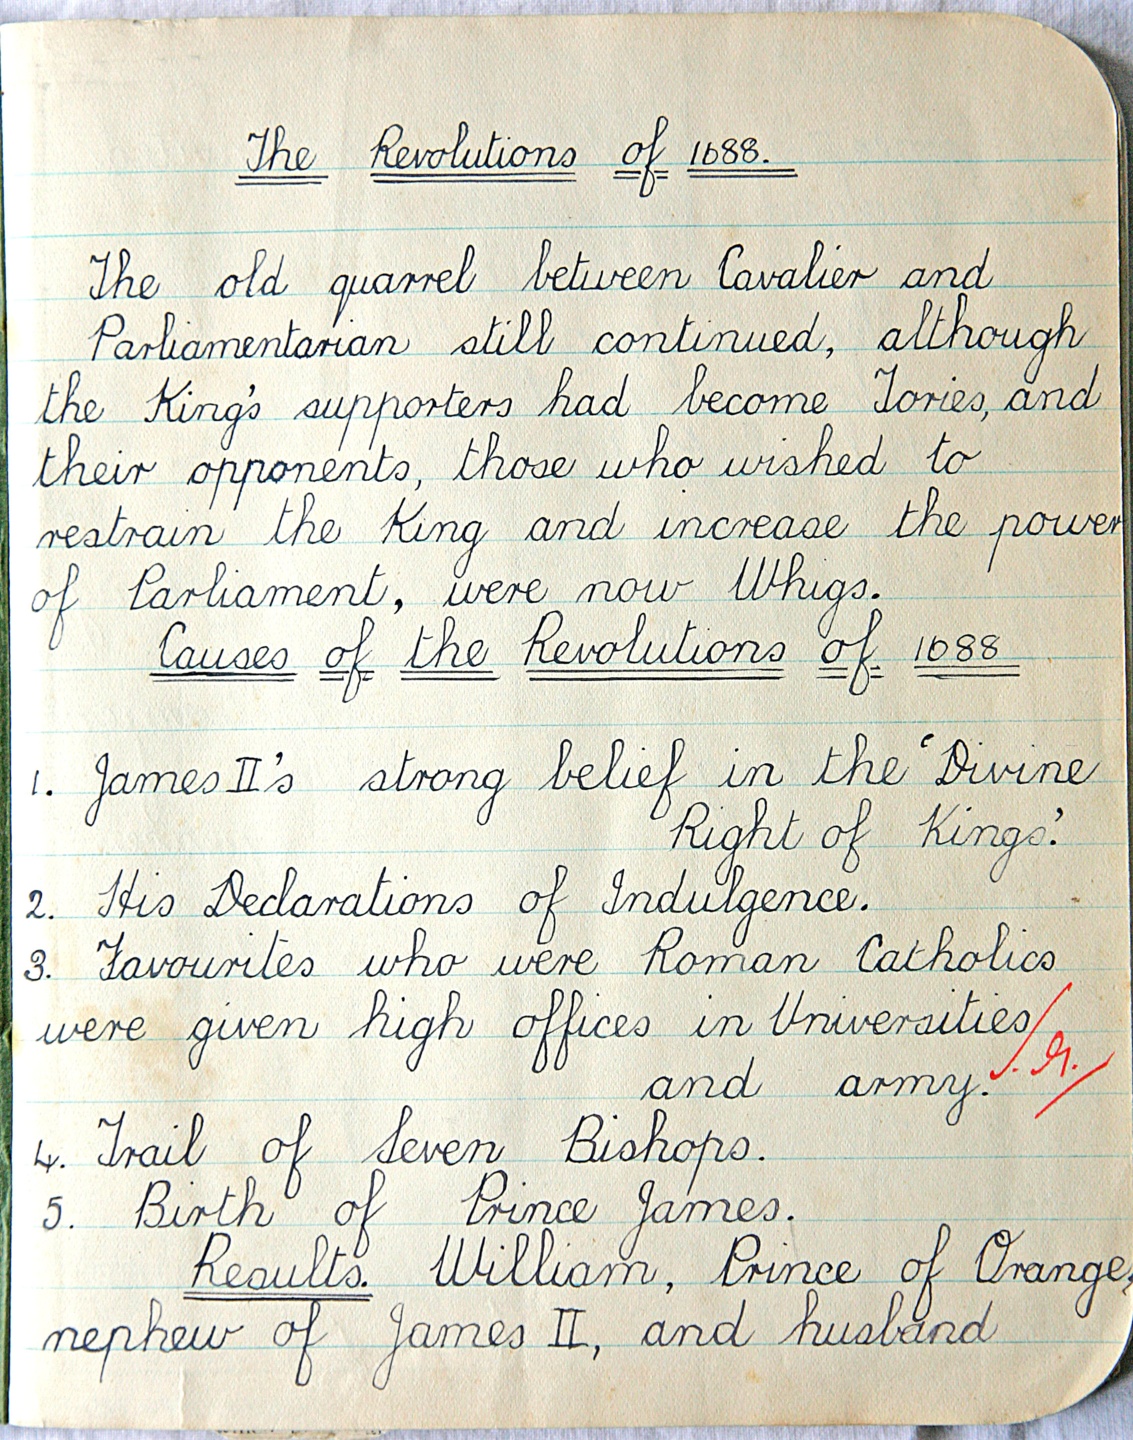 The Revolutions of 1688.
The old quarrel between Cavalier and
Parliamentarian still continued, although
the King's supporters had become Tories, and
their opponents, those who wished to
restrain the King and increase the power
of Parliament, were now Whigs.
Causes of the Revolutions of 1688
1. James II's strong belief in the 'Divine
Right of Kings.'
2. His Declarations of Indulgence.
3. Favourites who were Roman Catholics
were given high offices in Universities
and army.
4. Trail of Seven Bishops.
5. Birth of Prince James.
Results. William, Prince of Orange,
nephew of James II, and husband